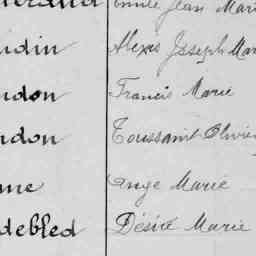 Emile Jean Mari
udin Alexis Joseph Mar
ndon Francis Marie
ndon Toussaint Olivie
me Ange Marie
debled Désiré Marie